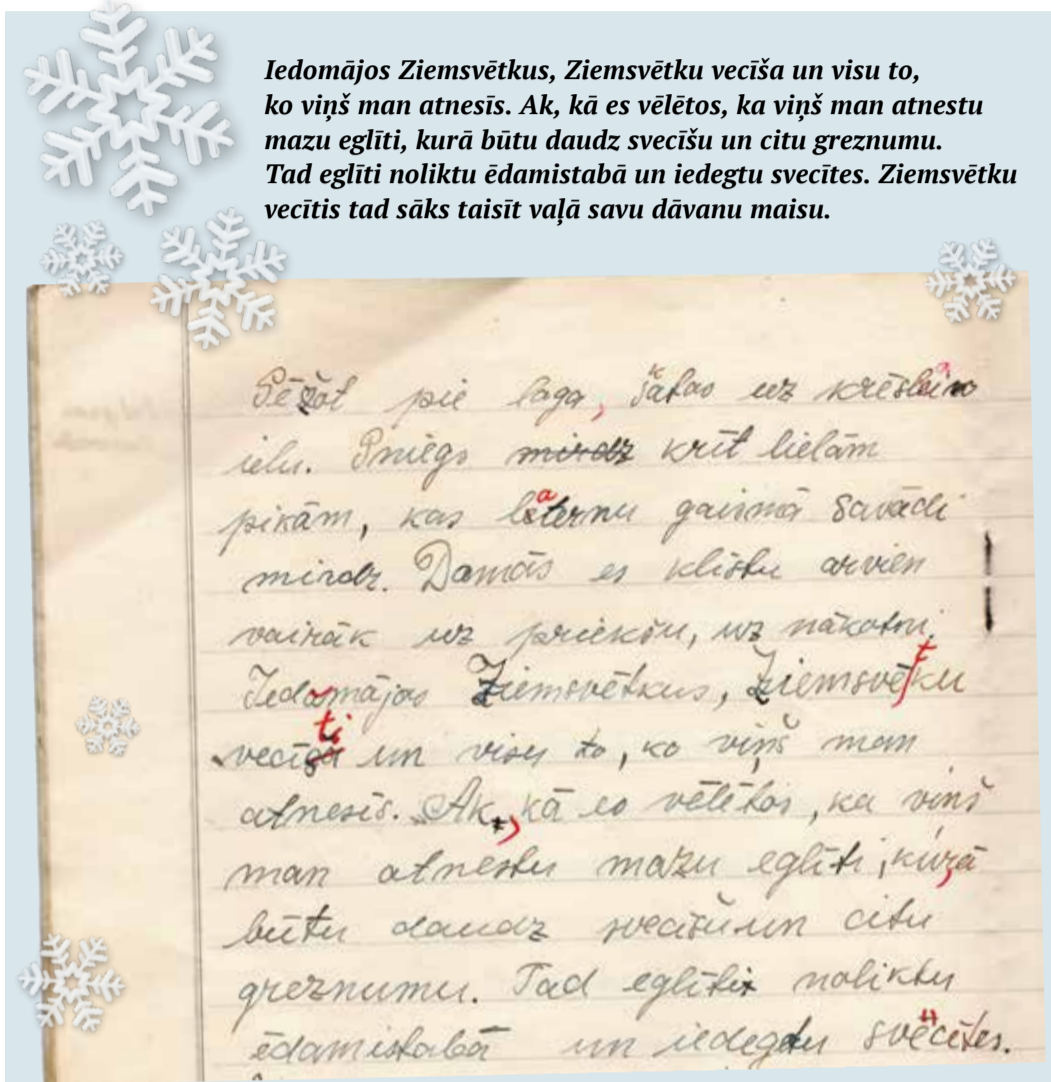 Iedomājos Ziemsvētkus, Ziemsvētku vecīša un visu to,
ko viņš man atnesīs. Ak, kā es vēlētos, ka viņš man atnestu
mazu eglīti, kurā būtu daudz svecīšu un citu greznumu.
Tad eglīti noliktu ēdamistabā un iedegtu svecītes. Ziemsvētku
vecītis tad sāks taisīt vaļā savu dāvanu maisu.
Sēžot pie loga, skatos uz
ielu. Sniegs mirdz krīt lielām
pikām, kas laternu gaismā savādi
mirdz. Domās es klīstu arvien
vairāk uz priekšu, uz nākotni.
Iedomājos Ziemsvētkus, Ziemsvētku
un visu to, ko viņš man
atnesīs. Ak, kā es vēlētos, ka viņš
man atnestu mazu eglīti, kurā
būtu daudz svecīšu un citu
greznumu. Tad eglīti noliktu
ēdamistabā un iedegtu svecītes.